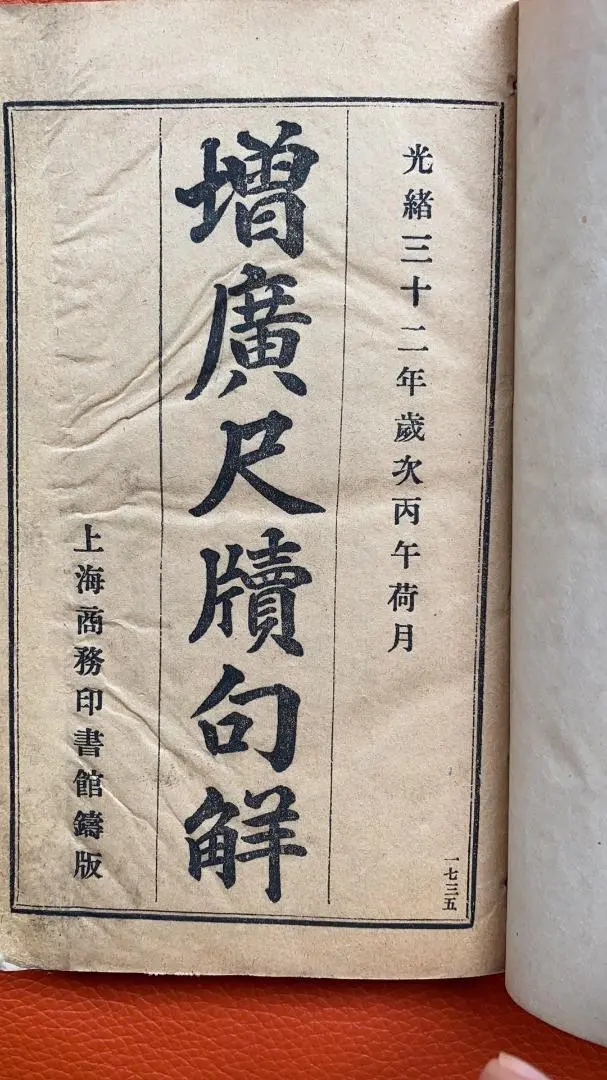 光緒三十二年歲次丙午荷月
增廣尺牘句解
上海商務印書館鑄版
一七三五